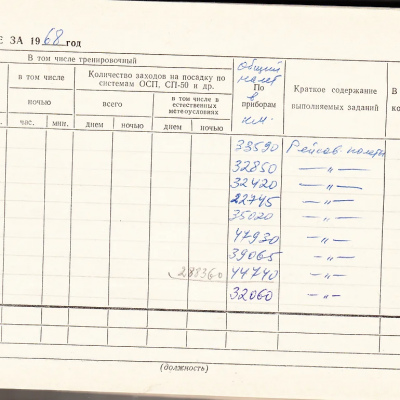 Е ЗА 1968 год
В том числе тренировочный
в том числе
ночью
час.
мин.
Количество заходов на посадку по системам ОСП, СП-50 и др.
всего
в том числе в естественных метеоусловиях
днем
ночью
днем
ночью
Общий
налет
По
в
приборам
км.
Краткое содержание
выполняемых заданий
В
ко
33590 Рейсов. полеты
32850 —"—
32420 —"—
22745 —"—
35020 —"—
47930 —"—
39065 —"—
288360 44740 —"—
32060 —"—
(должность)